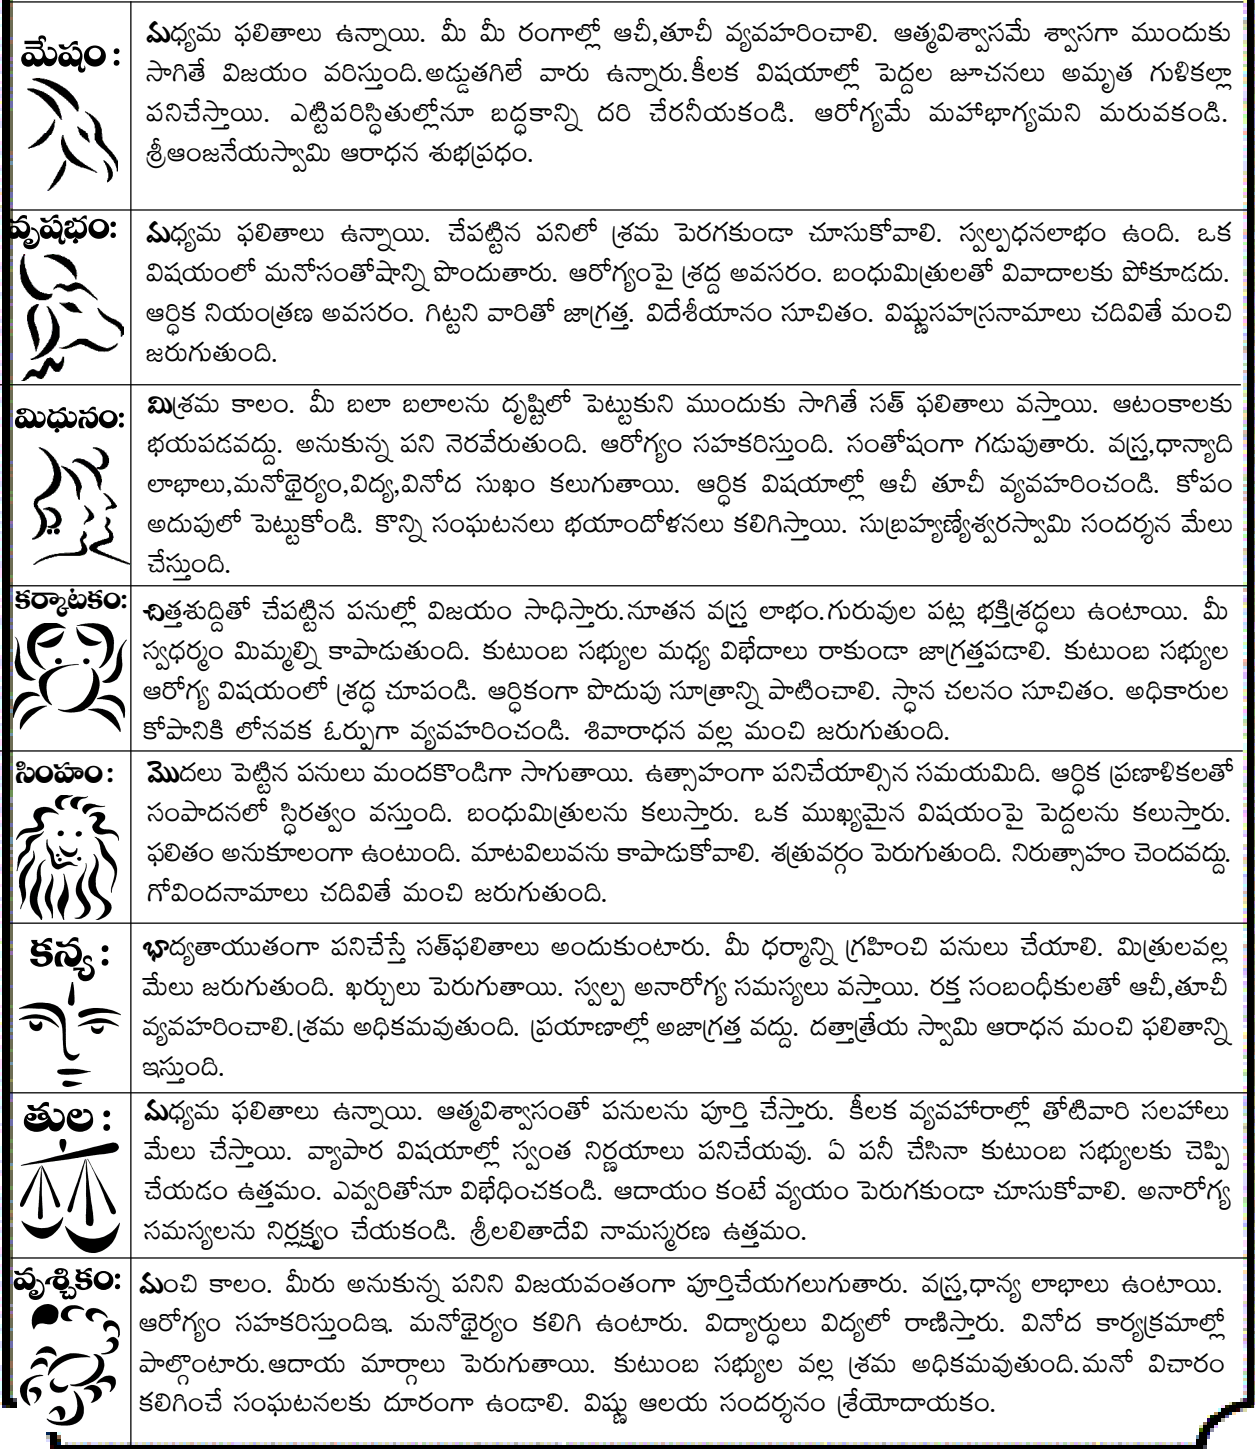 మేషం :
మధ్యమ ఫలితాలు ఉన్నాయి. మీ మీ రంగాల్లో ఆచీ,తూచీ వ్యవహరించాలి. ఆత్మవిశ్వాసమే శ్వాసగా ముందుకు
సాగితే విజయం వరిస్తుంది.అడ్డుతగిలే వారు ఉన్నారు.కీలక విషయాల్లో పెద్దల జూచనలు అమృత గుళికల్లా
పనిచేస్తాయి. ఎట్టిపరిస్థితుల్లోనూ బద్ధకాన్ని దరి చేరనీయకండి. ఆరోగ్యమే మహాభాగ్యమని మరువకండి.
శ్రీఆంజనేయస్వామి ఆరాధన శుభప్రధం.
వృషభం:
మధ్యమ ఫలితాలు ఉన్నాయి. చేపట్టిన పనిలో శ్రమ పెరగకుండా చూసుకోవాలి. స్వల్పధనలాభం ఉంది. ఒక
విషయంలో మనోసంతోషాన్ని పొందుతారు. ఆరోగ్యంపై శ్రద్ద అవసరం. బంధుమిత్రులతో వివాదాలకు పోకూడదు.
ఆర్ధిక నియంత్రణ అవసరం. గిట్టని వారితో జాగ్రత్త. విదేశీయానం సూచితం. విష్ణుసహస్రనామాలు చదివితే మంచి
జరుగుతుంది.
మిధునం:
మిశ్రమ కాలం. మీ బలా బలాలను దృష్టిలో పెట్టుకుని ముందుకు సాగితే సత్ ఫలితాలు వస్తాయి. ఆటంకాలకు
భయపడవద్దు. అనుకున్న పని నెరవేరుతుంది. ఆరోగ్యం సహకరిస్తుంది. సంతోషంగా గడుపుతారు. వస్త్ర,ధాన్యాది
లాభాలు,మనోధైర్యం,విద్య,వినోద సుఖం కలుగుతాయి. ఆర్ధిక విషయాల్లో ఆచీ తూచీ వ్యవహరించండి. కోపం
అదుపులో పెట్టుకోండి. కొన్ని సంఘటనలు భయాందోళనలు కలిగిస్తాయి. సుబ్రహ్మణ్యేశ్వరస్వామి సందర్శన మేలు
చేస్తుంది.
కర్కాటకం:
చిత్తశుద్దితో చేపట్టిన పనుల్లో విజయం సాధిస్తారు.నూతన వస్త్ర లాభం.గురువుల పట్ల భక్తిశ్రద్ధలు ఉంటాయి. మీ
స్వధర్మం మిమ్మల్ని కాపాడుతుంది. కుటుంబ సభ్యుల మధ్య విభేదాలు రాకుండా జాగ్రత్తపడాలి. కుటుంబ సభ్యుల
ఆరోగ్య విషయంలో శ్రద్ధ చూపండి. ఆర్ధికంగా పొదుపు సూత్రాన్ని పాటించాలి. స్థాన చలనం సూచితం. అధికారుల
కోపానికి లోనవక ఓర్పుగా వ్యవహరించండి. శివారాధన వల్ల మంచి జరుగుతుంది.
సింహం :
మొదలు పెట్టిన పనులు మందకొండిగా సాగుతాయి. ఉత్సాహంగా పనిచేయాల్సిన సమయమిది. ఆర్ధిక ప్రణాళికలతో
సంపాదనలో స్థిరత్వం వస్తుంది. బంధుమిత్రులను కలుస్తారు. ఒక ముఖ్యమైన విషయంపై పెద్దలను కలుస్తారు.
ఫలితం అనుకూలంగా ఉంటుంది. మాటవిలువను కాపాడుకోవాలి. శత్రువర్గం పెరుగుతుంది. నిరుత్సాహం చెందవద్దు.
గోవిందనామాలు చదివితే మంచి జరుగుతుంది.
కన్య :
భాద్యతాయుతంగా పనిచేస్తే సత్‌ఫలితాలు అందుకుంటారు. మీ ధర్మాన్ని గ్రహించి పనులు చేయాలి. మిత్రులవల్ల
మేలు జరుగుతుంది. ఖర్చులు పెరుగుతాయి. స్వల్ప అనారోగ్య సమస్యలు వస్తాయి. రక్త సంబంధీకులతో ఆచీ,తూచీ
వ్యవహరించాలి.శ్రమ అధికమవుతుంది. ప్రయాణాల్లో అజాగ్రత్త వద్దు. దత్తాత్రేయ స్వామి ఆరాధన మంచి ఫలితాన్ని
ఇస్తుంది.
తుల :
మధ్యమ ఫలితాలు ఉన్నాయి. ఆత్మవిశ్వాసంతో పనులను పూర్తి చేస్తారు. కీలక వ్యవహారాల్లో తోటివారి సలహాలు
మేలు చేస్తాయి. వ్యాపార విషయాల్లో స్వంత నిర్ణయాలు పనిచేయవు. ఏ పనీ చేసినా కుటుంబ సభ్యులకు చెప్పి
చేయడం ఉత్తమం. ఎవ్వరితోనూ విభేధించకండి. ఆదాయం కంటే వ్యయం పెరుగకుండా చూసుకోవాలి. అనారోగ్య
సమస్యలను నిర్లక్ష్యం చేయకండి. శ్రీలలితాదేవి నామస్మరణ ఉత్తమం.
వృశ్చికం:
మంచి కాలం. మీరు అనుకున్న పనిని విజయవంతంగా పూర్తిచేయగలుగుతారు. వస్త్ర,ధాన్య లాభాలు ఉంటాయి.
ఆరోగ్యం సహకరిస్తుందిఇ. మనోధైర్యం కలిగి ఉంటారు. విద్యార్ధులు విద్యలో రాణిస్తారు. వినోద కార్యక్రమాల్లో
పాల్గొంటారు.ఆదాయ మార్గాలు పెరుగుతాయి. కుటుంబ సభ్యుల వల్ల శ్రమ అధికమవుతుంది.మనో విచారం
కలిగించే సంఘటనలకు దూరంగా ఉండాలి. విష్ణు ఆలయ సందర్శనం శ్రేయోదాయకం.